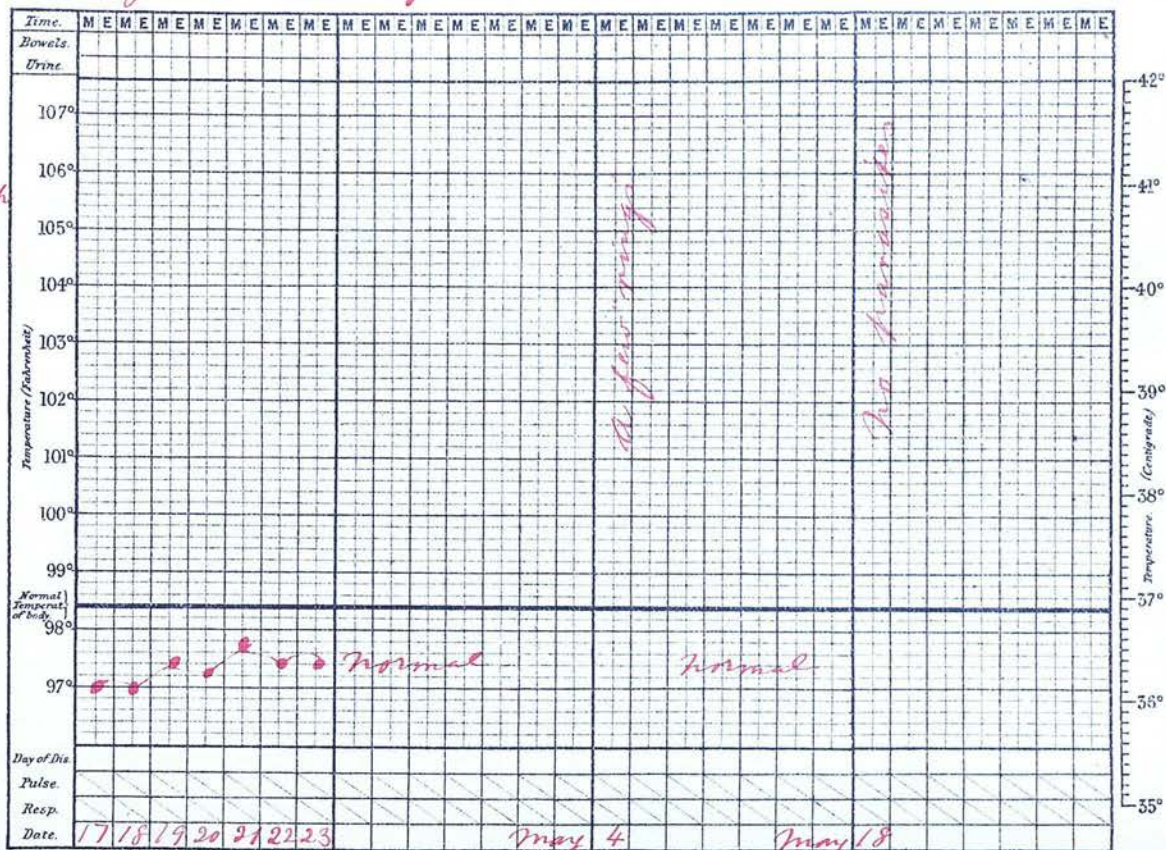 Time. M E M E M E M E M E M E M E M E M E M E M E M E M E M E M E M E M E M E M E M E M E M E M E M E M E M E M E M E
Bowels.
Urine.
107°
106°
105°
104°
103°
102°
101°
100°
99°
98°
97°
Temperature (Fahrenheit)
Normal Temperat. of body
42°
41°
40°
39°
38°
37°
36°
35°
Temperature. (Centigrade)
A few rings
No parasites
Normal
Normal
Day of Dis.
Pulse.
Resp.
Date. 17 18 19 20 21 22 23 May 4 May 18